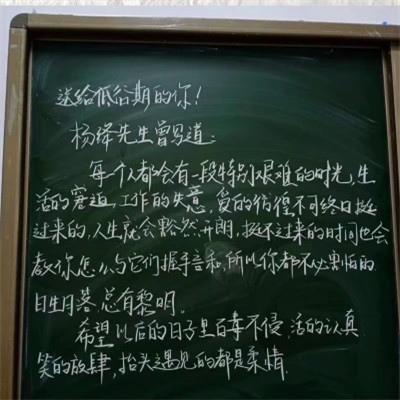 送给低谷期的你!
杨绛先生曾写道:
每个人都会有一段特别艰难的时光,生
活的窘迫,工作的失意,爱的彷徨不可终日挺
过来的,人生就会豁然开朗,挺不过来的时间也会
教你怎么与它们握手言和,所以你都不必害怕的
日生月落,总有黎明。
希望以后的日子里百毒不侵,活的认真
笑的放肆,抬头遇见的都是柔情.